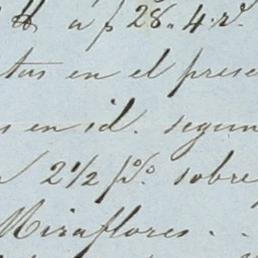 a p 28. 4. rs.
tas en el prese
s en id. segun
2 1/2 p%. sobre
Miraflores . . .